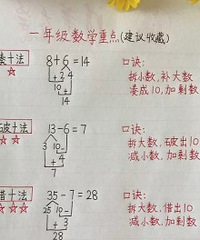 一年级数学重点(建议收藏)
凑十法
8+6=14
2 4
10
14
口诀:
拆小数,补大数
凑成10,加剩数
破十法
13-6=7
3 10
4
7
口诀:
拆大数,破出10
减小数,加剩数
借十法
35-7=28
25 10
3
28
口诀:
拆大数,借出10
减小数,加剩数